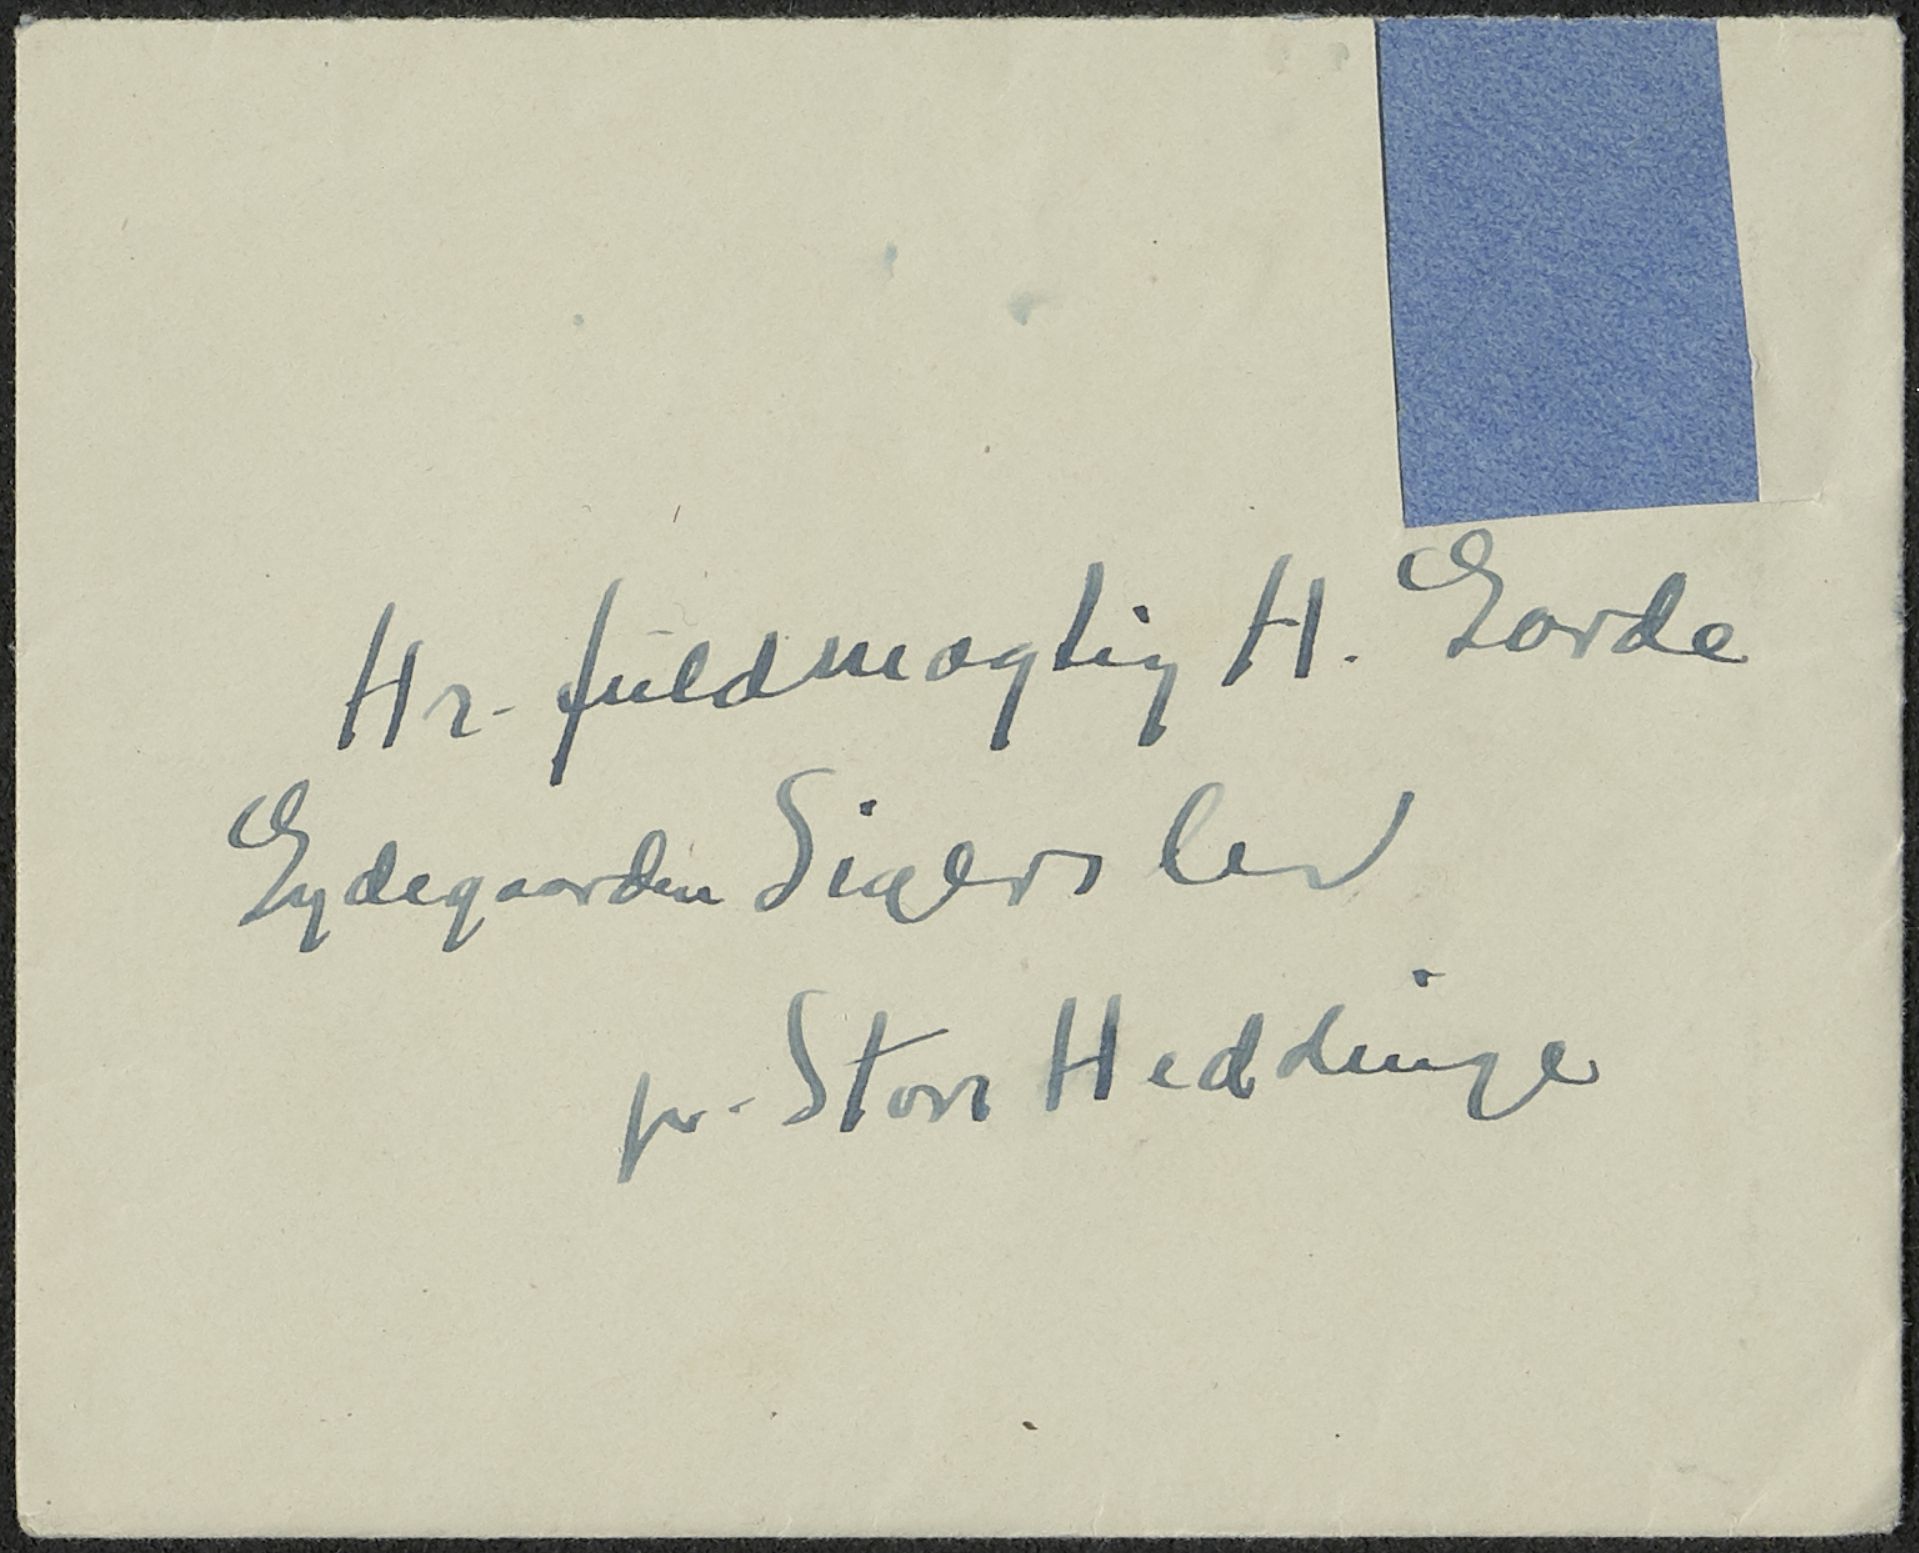 Hr. fuldmægtig H. Garde
Gydegaarden Sigerslev
pr. Store Heddinge